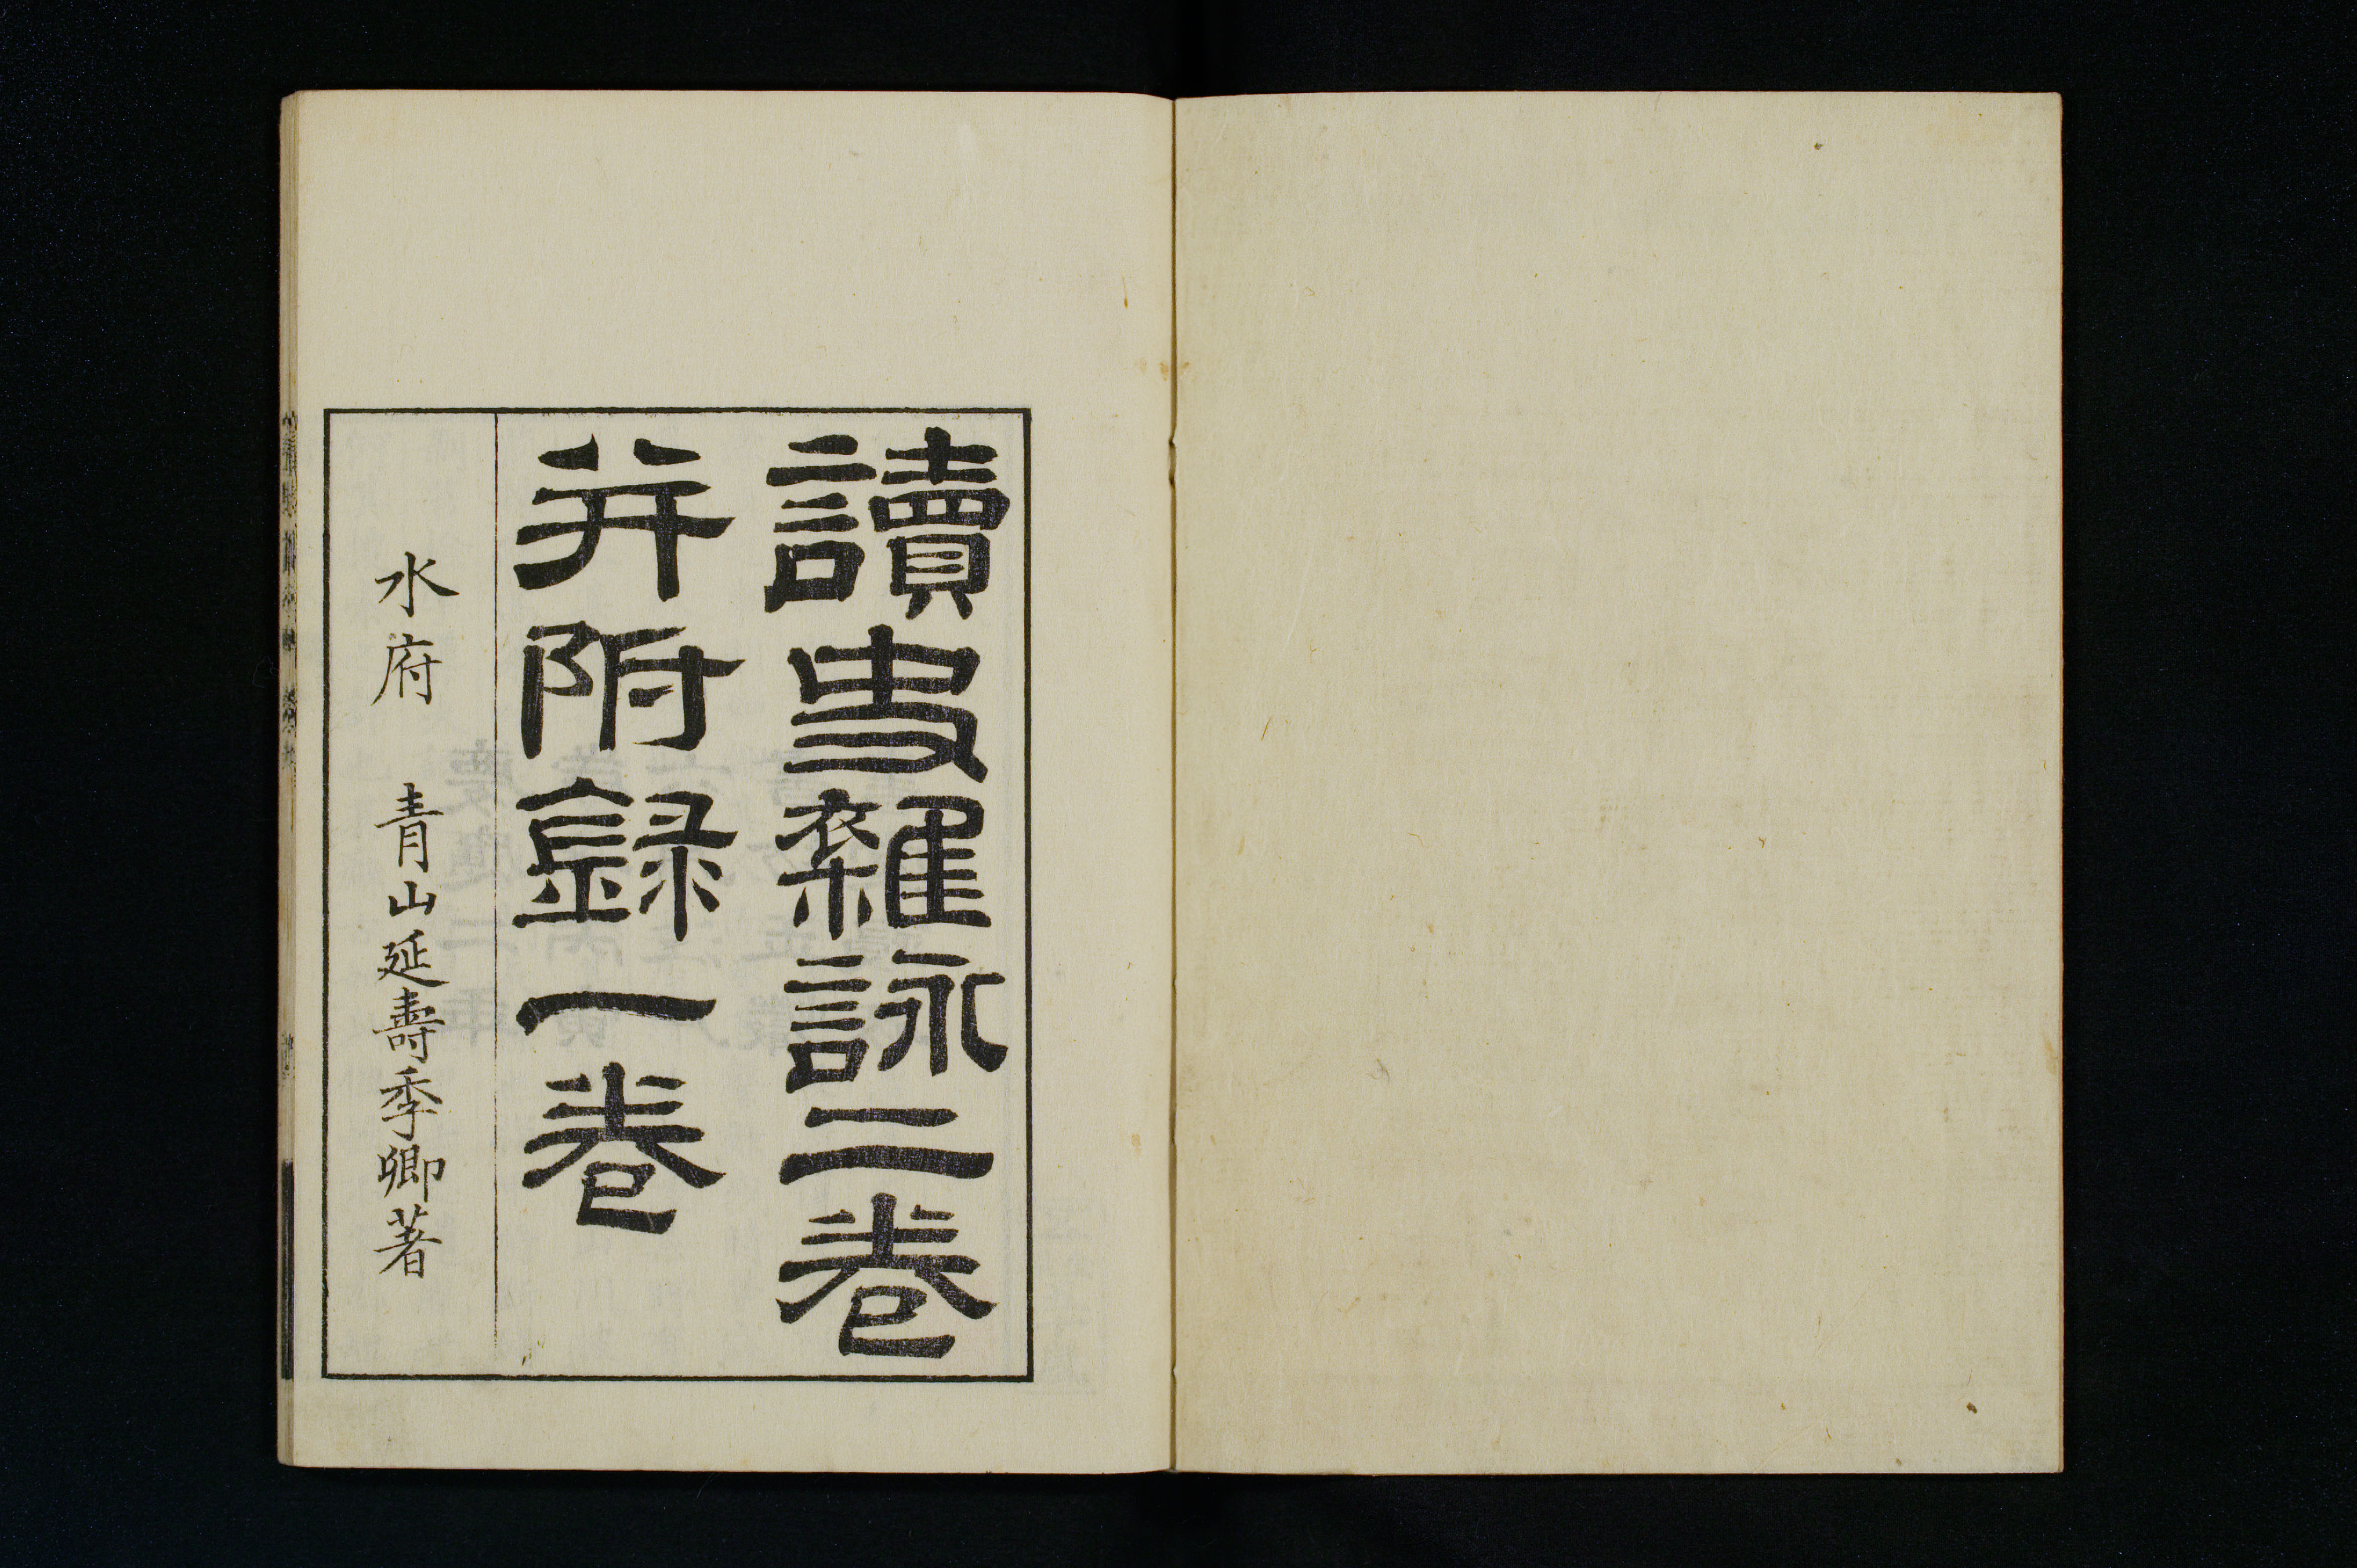 讀史雜詠二卷
并附錄一卷
水府 青山延壽季卿著